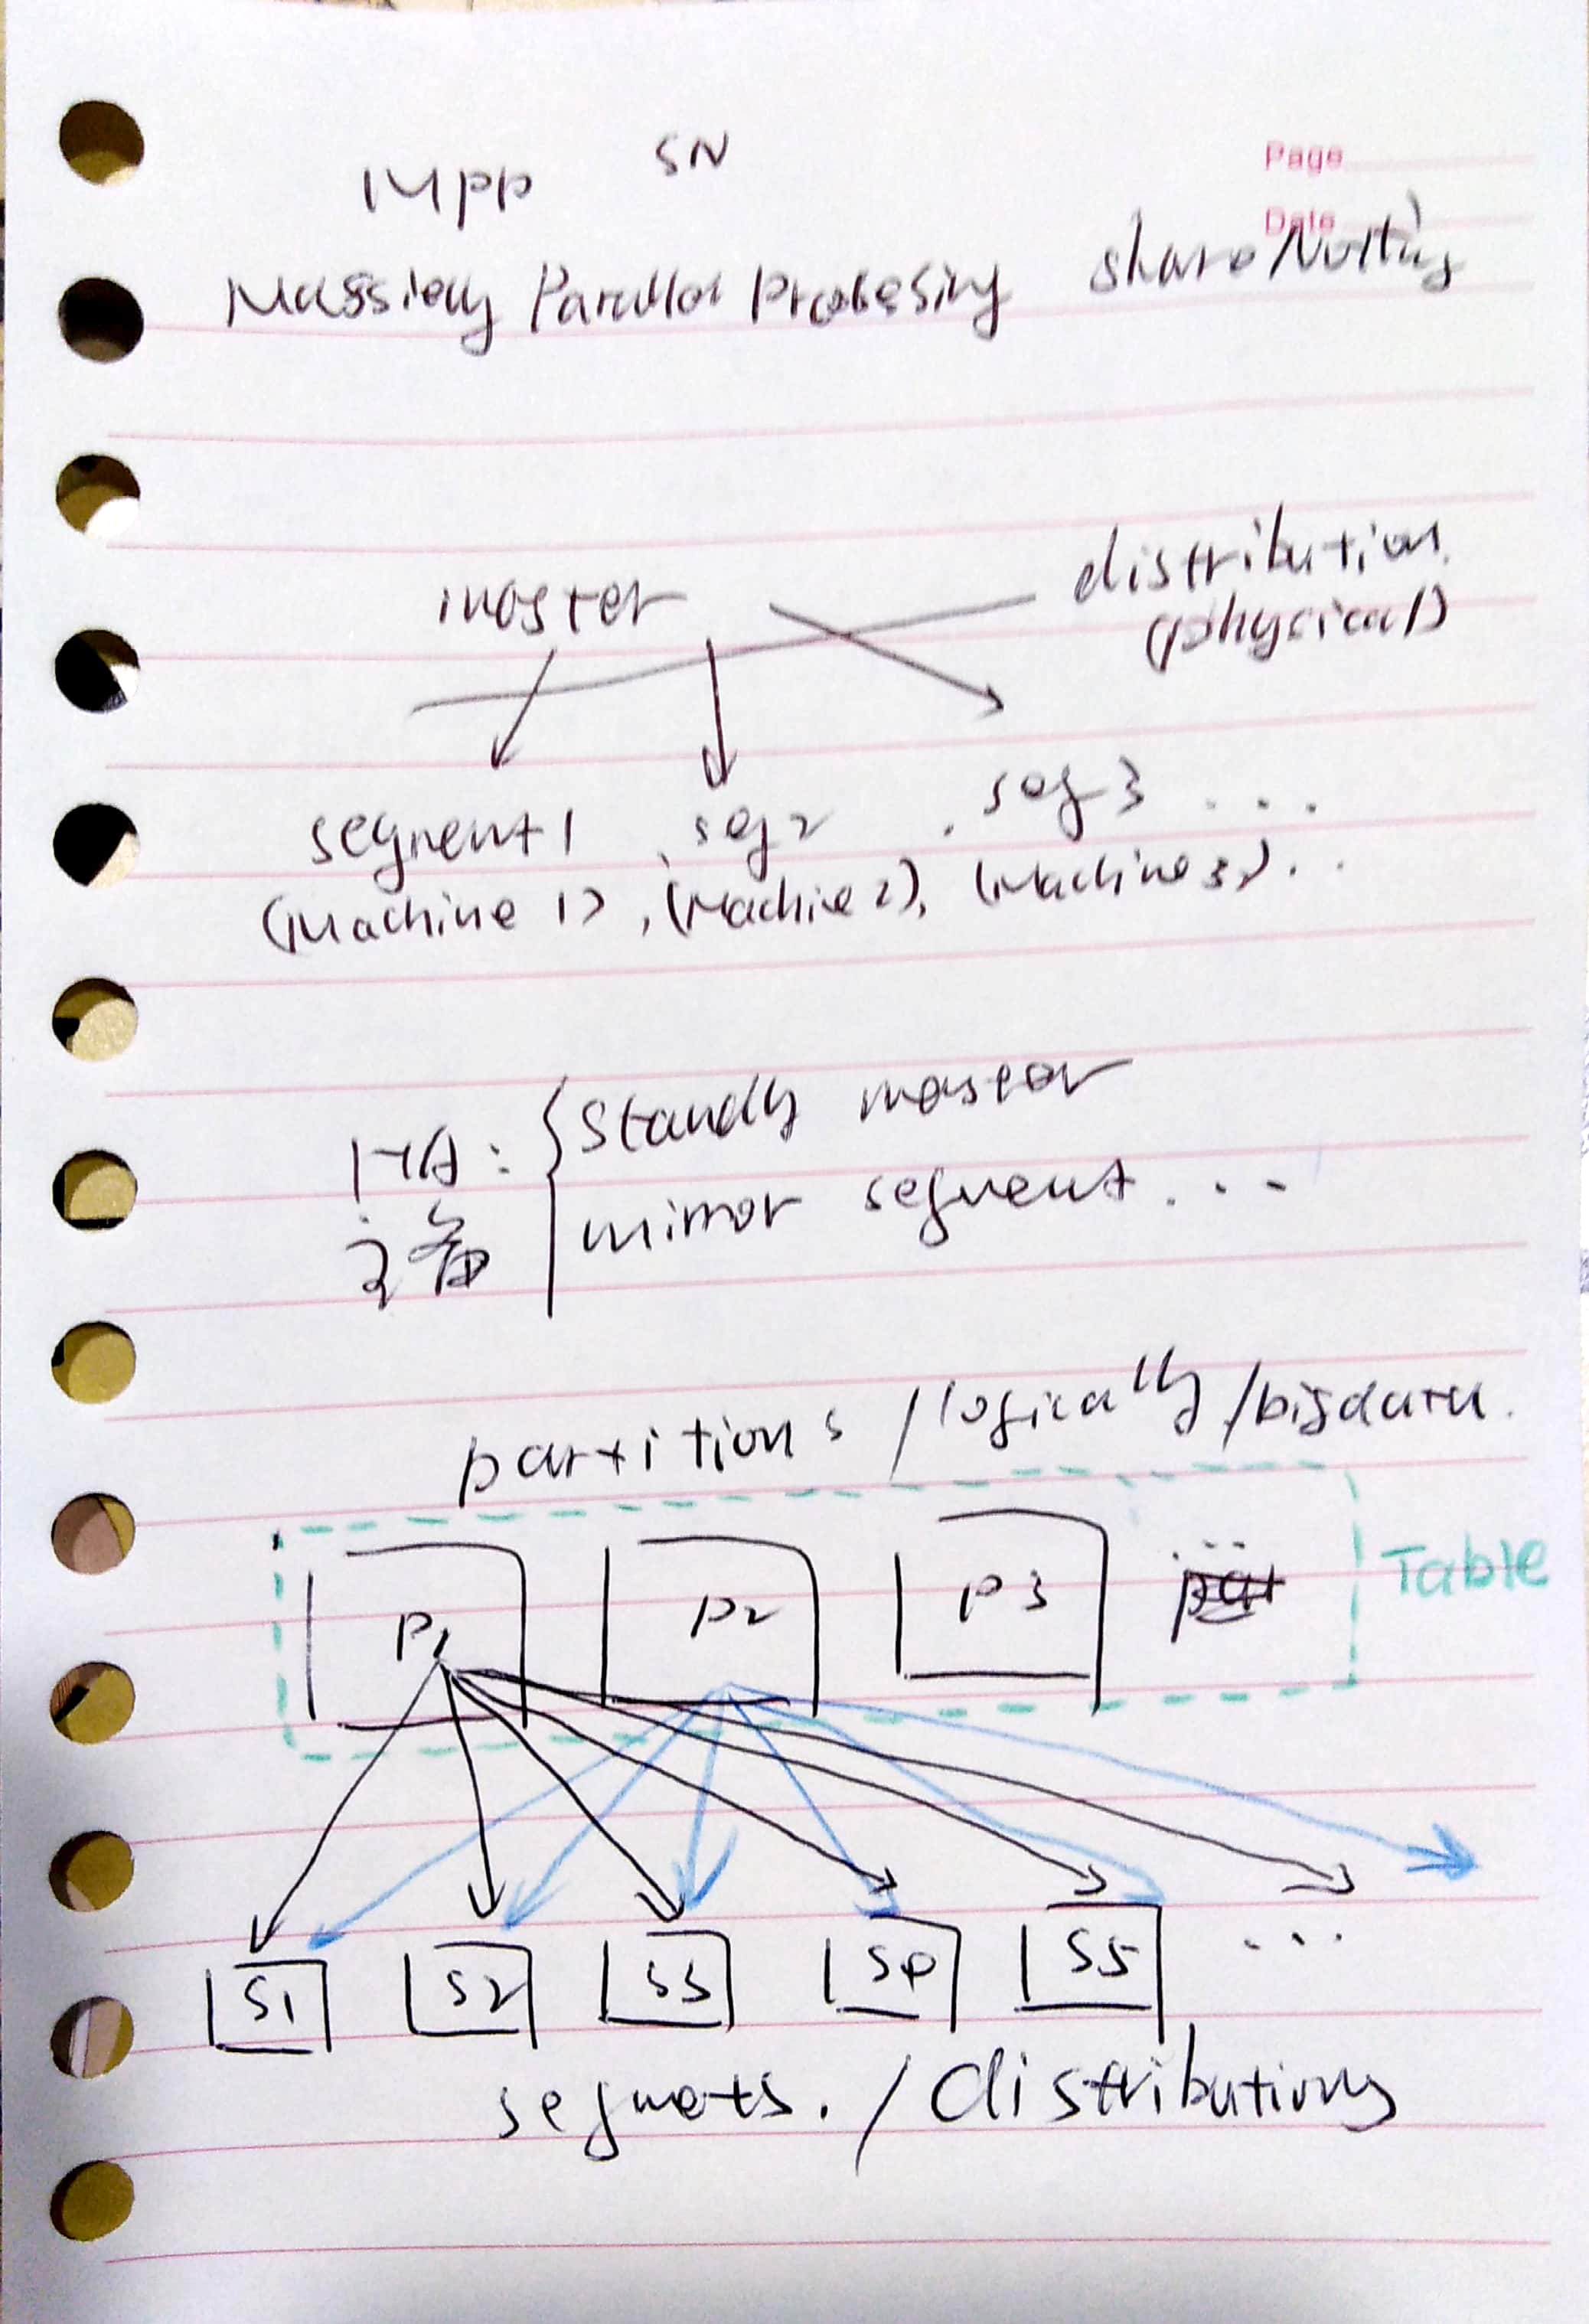 MPP SN
Page
Date
Massiely Parallel Procesing share Nothing
master
distribution.
(physical)
segment1 , seg2 , seg3 ...
(Machine 1) , (Machine 2), (Machine 3) ...
HA: { Standy master
主备 mirror segment ...
partitions / logically / bigdata.
Table
P1 P2 P3 ...
S1 S2 S3 S4 S5 ...
segmets. / Distributions